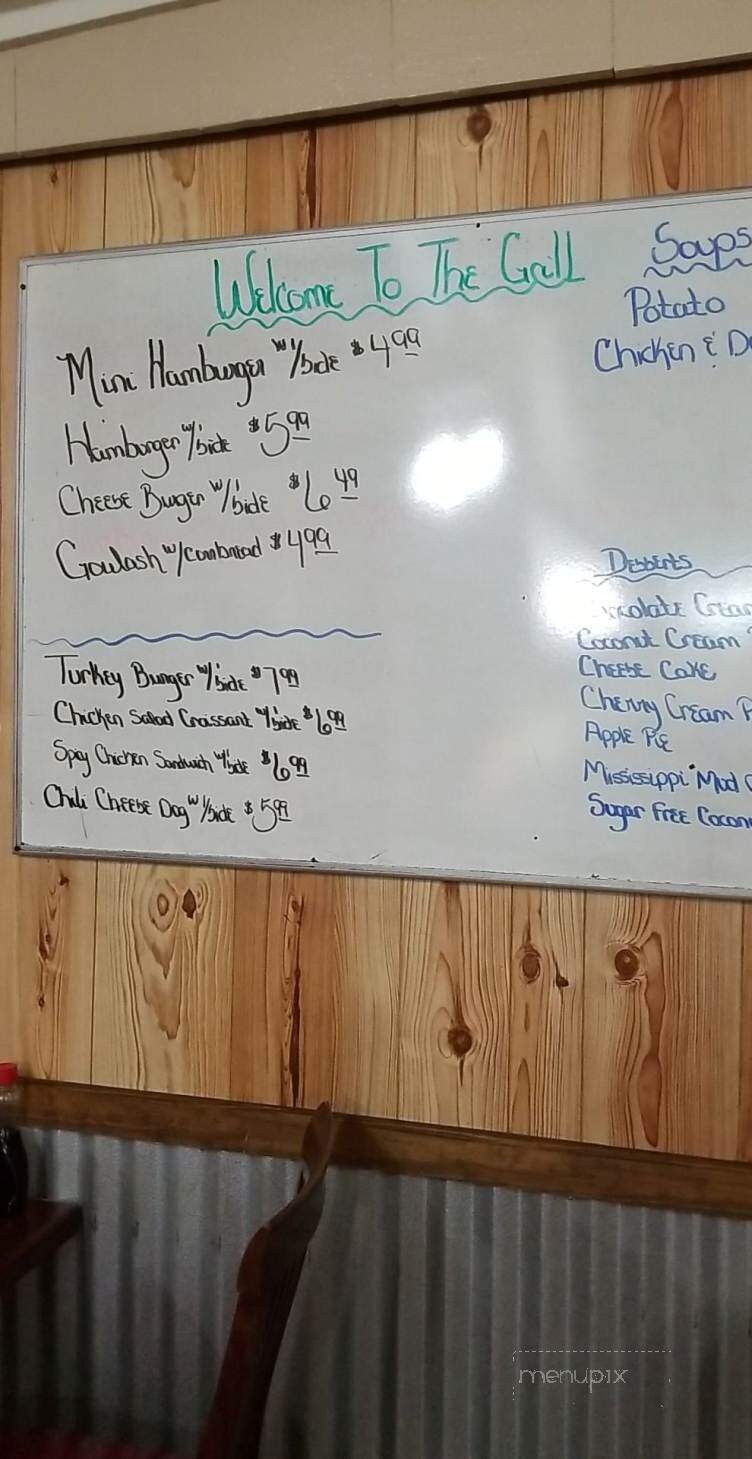 Welcome To The Grill
Mini Hamburger w/1side $4.99
Hamburger w/1side $5.99
Cheese Burger w/1side $6.49
Goulash w/cornbread $4.99
Turkey Burger w/1side $7.99
Chicken Salad Croissant w/1side $6.99
Spicy Chicken Sandwich w/1side $6.99
Chili Cheese Dog w/1side $5.99
Soups
Potato
Chicken &
Desserts
Coconut Cream
Cheese Cake
Cherry Cream
Apple Pie
Mississippi Mud
Sugar Free
menupix